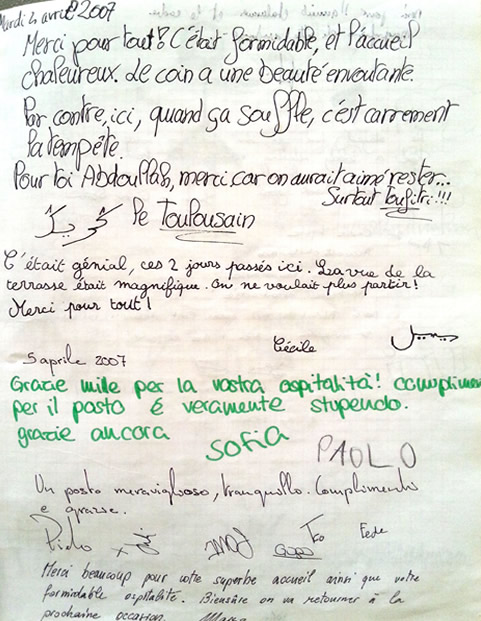 Mardi 2 avril 2007
Merci pour tout! C'était formidable, et l'accueil
chaleureux. Le coin a une beauté envoutante.
Par contre, ici, quand ça souffle, c'est carrement
la tempête.
Pour toi Abdoullah, merci car on aurait aimé rester...
Surtout !!!
le Toulousain
C'était génial, ces 2 jours passés ici. La vue de la
terrasse était magnifique. On ne voulait plus partir!
Merci pour tout!
Cécile
5 aprile 2007
Grazie mille per la vostra ospitalità! complime
per il posto è veramente stupendo.
grazie ancora
Sofia
PAOLO
Un posto meraviglioso, tranquillo. Complimenti
e grazie.
Fede
Merci beaucoup pour votre superbe accueil ainsi que votre
formidable ospitalité. Biensûre on va retourner à la
prochaine occasion.